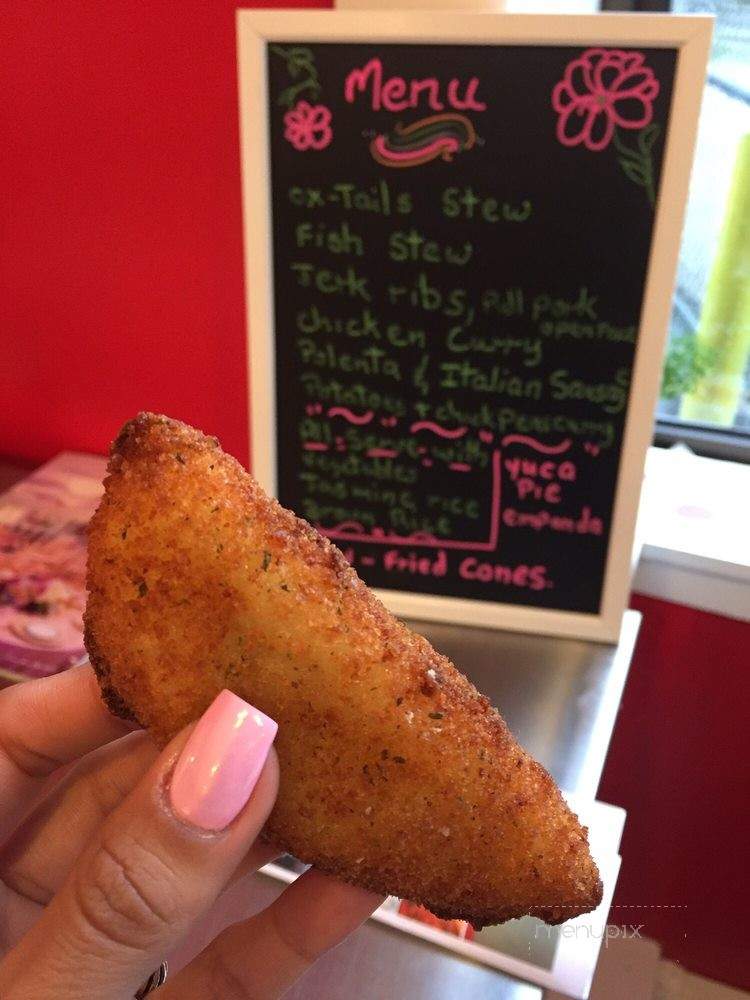 Menu
ox-Tails Stew
Fish Stew
Jerk ribs, Pull Pork
chicken Curry
Polenta & Italian
Potatoes
All Serve with
Vegetables
Jasmine rice
Brown Rice
yuca
Pie
empanda
- Fried Cones.
menupix